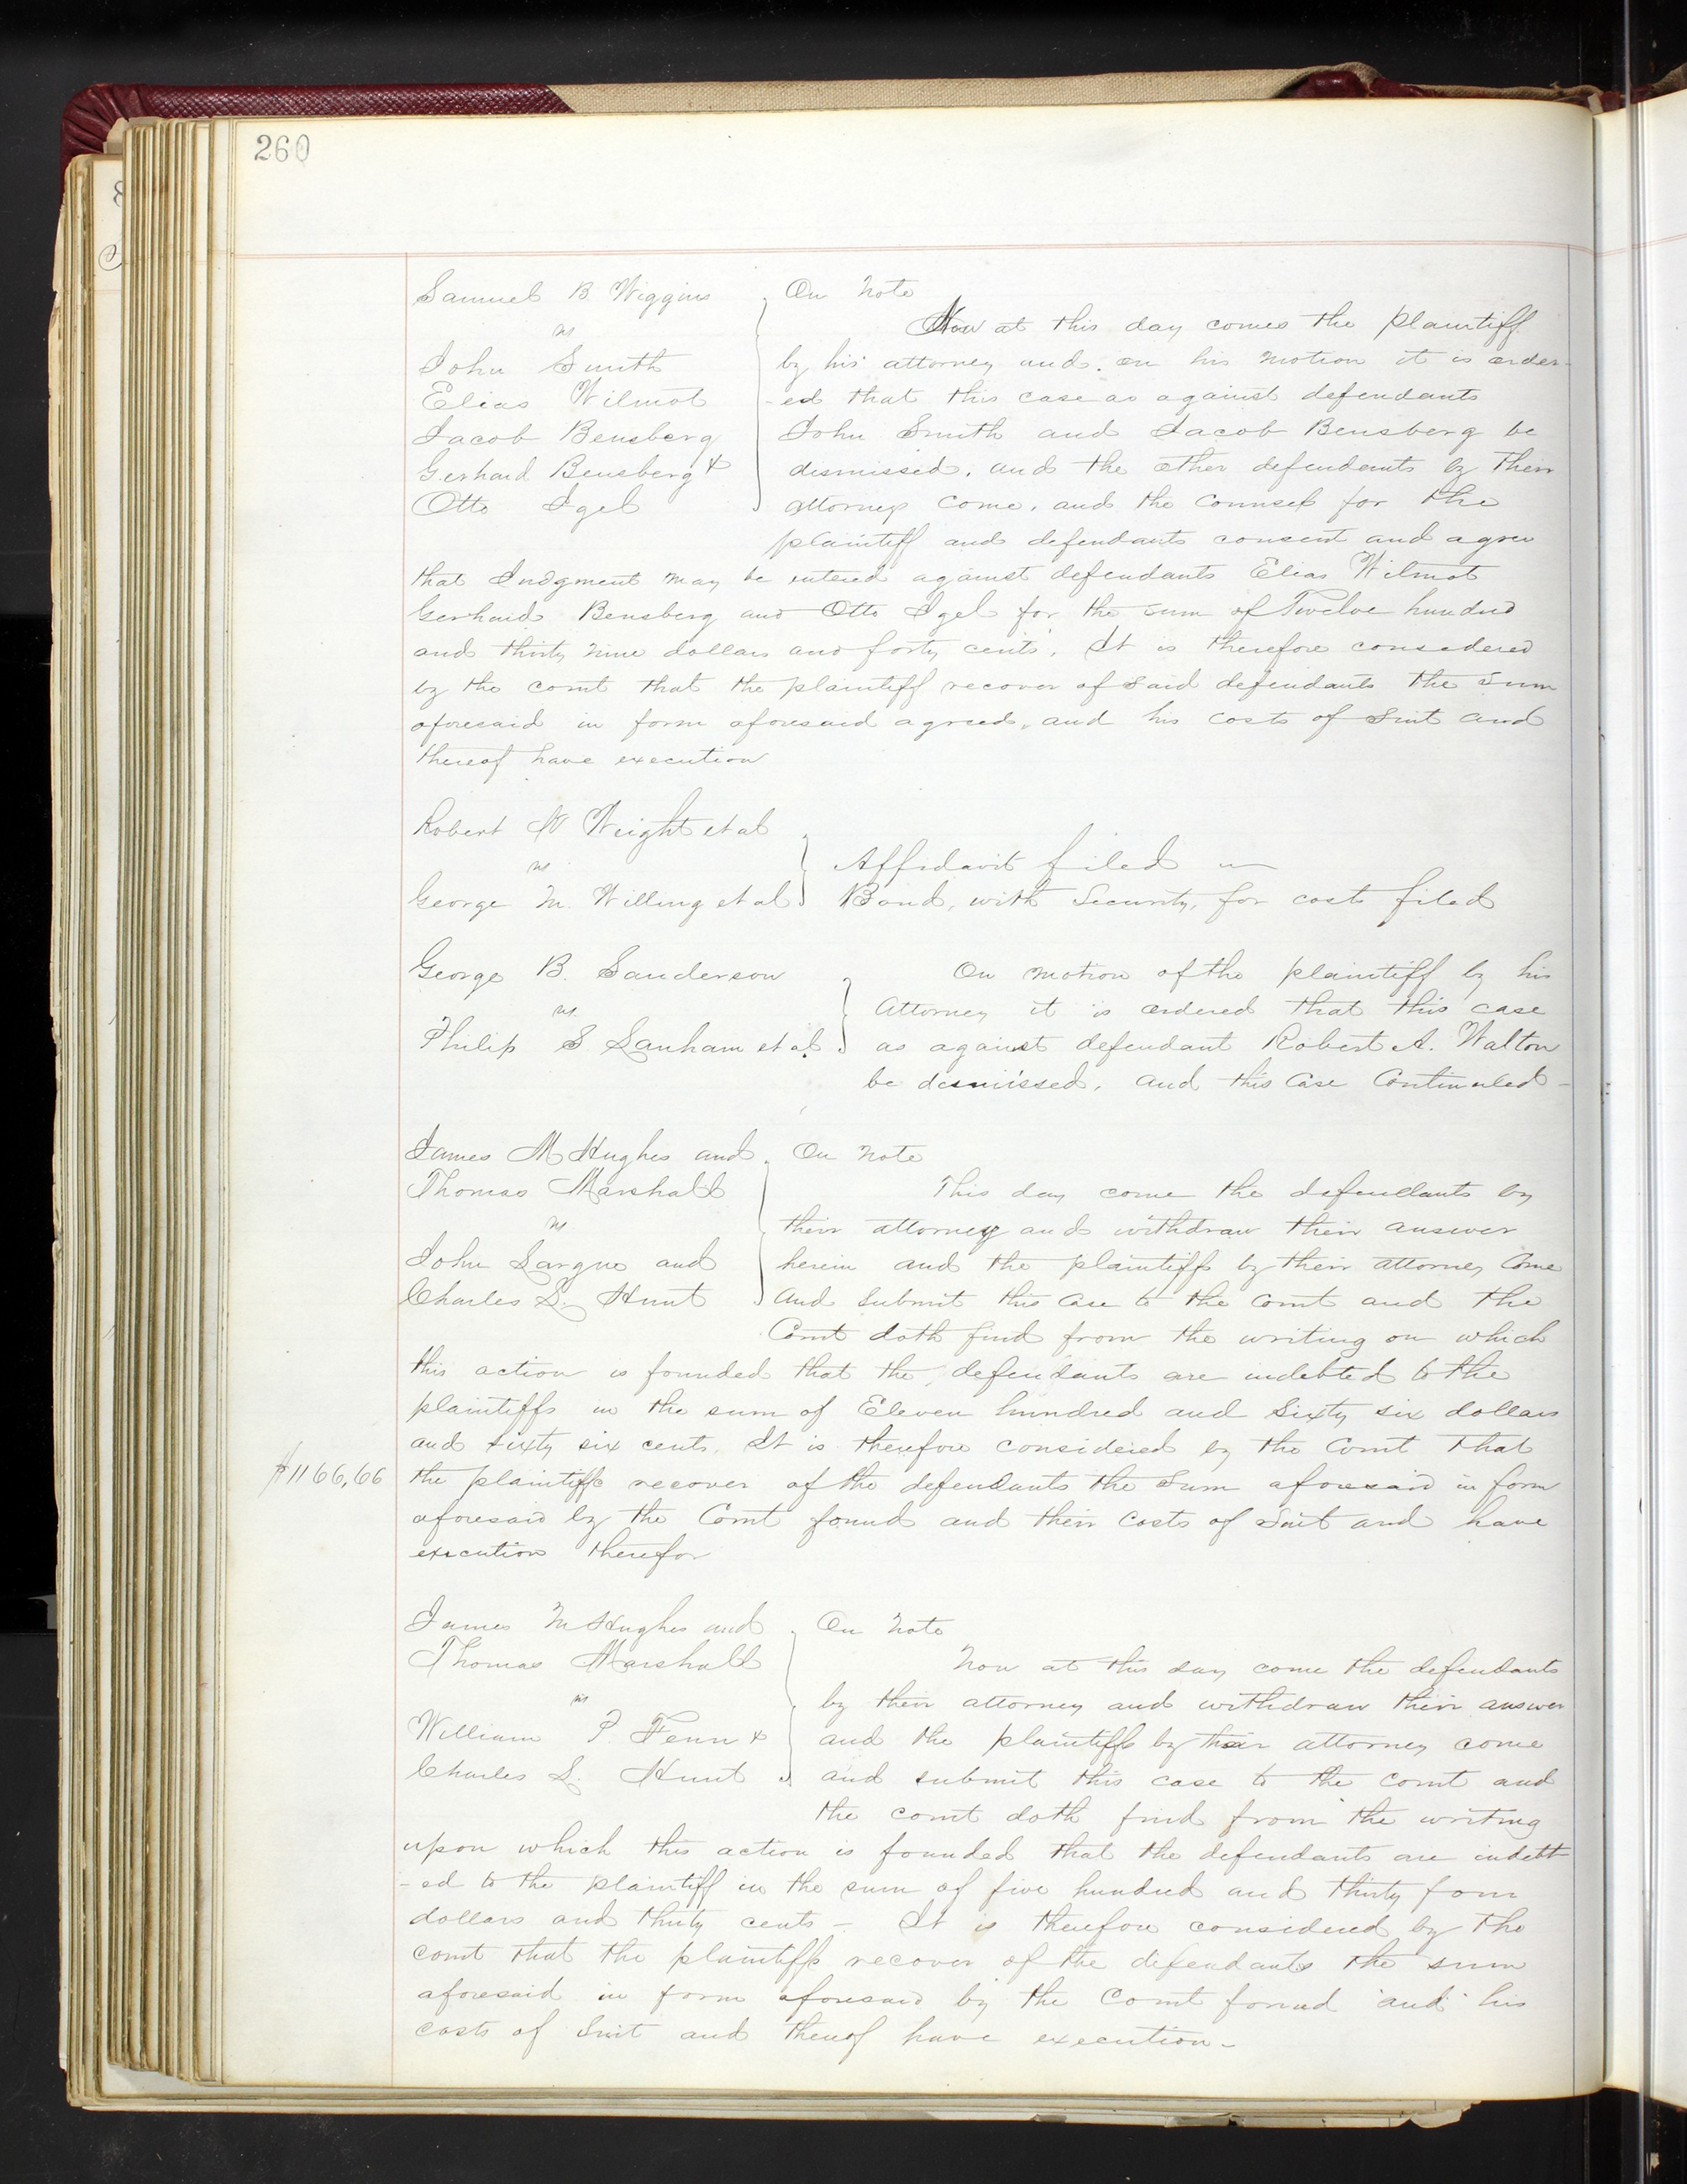 260
Samuel B. Wiggins
vs
John Smith
Elias Wilmot
Jacob Bensberg
Gerhard Bensberg &
Otto Igel
On Note
Now at this day comes the plaintiff
by his attorney and on his motion it is order-
-ed that this case as against defendants
John Smith and Jacob Bensberg be
dismissed, and the other defendants by their
attorney come, and the counsel for the
plaintiff and defendants consent and agree
that Judgment may be entered against defendants Elias Wilmot
Gerhard Bensberg and Otto Igel for the sum of Twelve hundred
and thirty nine dollars and forty cents. It is therefore considered
by the court that the plaintiff recover of said defendants the sum
aforesaid in form aforesaid agreed, and his costs of suit and
thereof have execution
Robert W Wright et al
vs
George M. Willing et al
Affidavit filed
Bond, with Security, for costs filed
George B. Sanderson
vs.
Philip S. Lanham et al.
On motion of the plaintiff by his
Attorney it is ordered that this case
as against defendant Robert A. Walton
be dismissed, and this Case Continued -
James M Hughes and
Thomas Marshall
vs
John Largue and
Charles L. Hunt
On Note
This day come the defendants by
their attorney and withdraw their answer
herein and the plaintiffs by their attorney Come
and submit this Case to the Court and the
Court doth find from the writing on which
this action is founded that the defendants are indebted to the
plaintiffs in the sum of Eleven hundred and Sixty six dollars
and sixty six cents. It is therefore considered by the Court that
$1166,66
the plaintiffs recover of the defendants the Sum aforesaid in form
aforesaid by the Court found and their Costs of Suit and have
execution therefor
James M Hughes and
Thomas Marshall
vs
William P. Fenn &
Charles L. Hunt
On Note
Now at this day come the defendants
by their attorney and withdraw their answer
and the plaintiffs by their attorney come
and submit this case to the court and
the court doth find from the writing
upon which this action is founded that the defendants are indebt
-ed to the plaintiff in the sum of five hundred and thirty four
dollars and thirty cents - It is therefore considered by the
court that the plaintiffs recover of the defendants the sum
aforesaid in form aforesaid by the Court found and his
costs of suit and thereof have execution -